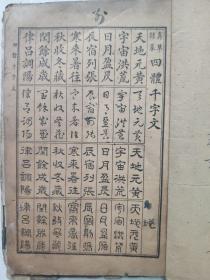 真草
隸篆
四體千字文
天地元黃 天地元黃 天地元黃 天地元黃
宇宙洪荒 宇宙洪荒 宇宙洪荒 宇宙洪荒
日月盈昃 日月盈昃 日月盈昃 日月盈昃
辰宿列張 辰宿列張 辰宿列張 辰宿列張
寒來暑往 寒來暑往 寒來暑往 寒來暑往
秋收冬藏 秋收冬藏 秋收冬藏 秋收冬藏
閏餘成歲 閏餘成歲 閏餘成歲 閏餘成歲
律呂調陽 律呂調陽 律呂調陽 律呂調陽